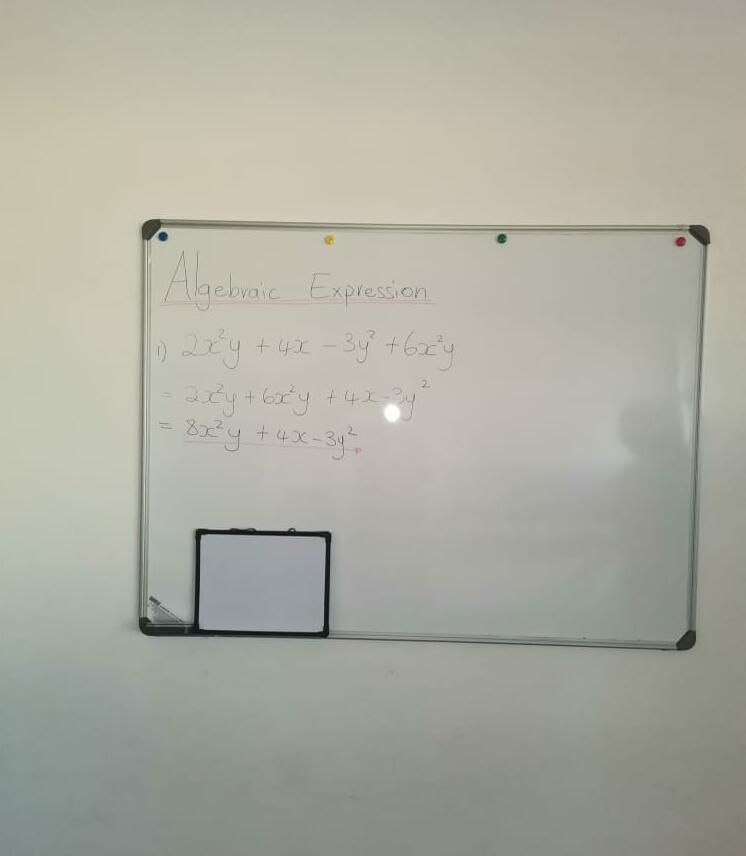 Algebraic Expression
1) 2x²y + 4x - 3y² + 6x²y
= 2x²y + 6x²y + 4x - 3y²
= 8x²y + 4x - 3y²